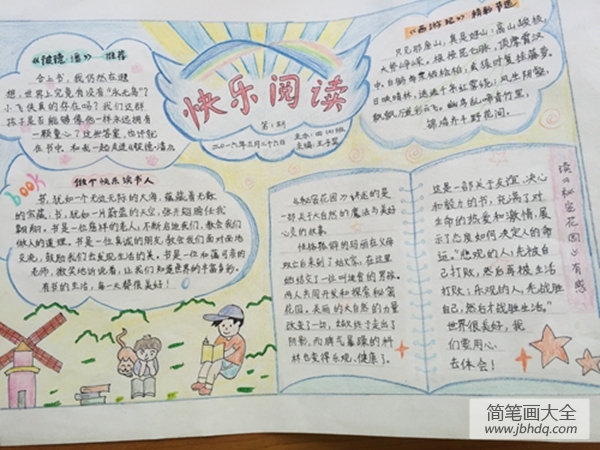 《彼德·潘》—推荐
合上书,我仍然在遐
想:世界上究竟有没有"永无岛"?
小飞侠真的存在吗?我们这群
孩子是否能够像他一样永远拥有
一颗童心?这些答案,也许就
在书中,和我一起走进《彼德·潘》
快乐阅读
第1期
二〇一六年三月二十六日
《西游记》精彩节选
只见那座山,真是好山:高山峻极,
大势峥嵘。根接昆仑脉,顶摩霄汉
中。白鹤
日映晴林,
飘飘
幽鸟乱啼青竹里,
锦鸡齐斗野花间。
book
做个快乐读书人
书,犹如一个无边无际的大海,蕴藏着无数
的宝藏;书,犹如一片蔚蓝的天空,张开翅膀任我
翱翔;书是一位慈祥的老人,不断启迪我们,教会我们
做人的道理。书是一位真诚的朋友,教会我们面对面地
交流,鼓励我们去发现生活的美。书是一位和蔼可亲的
老师,微笑地诉说着,让我们知道世界的丰富多彩。
有书的生活,每一天都很美好!
《秘密花园》讲述的是
一部关于大自然的魔法与美好
心灵的故事。
性格孤僻的玛丽在父母
双亡后来到了姑父家,在这里
她结交了一位叫迪肯的男孩。
两人共同开发和探索秘密
花园,美丽的大自然的力量
改变了一切,姑父终于走出了
阴影,而脾气暴躁的科林
也变得乐观、健康了。
这是一部关于友谊、决心
和毅力的书,充满了对
生命的热爱和激情,展
示了态度如何决定人的命
运。"悲观的人,先被自
己打败,然后再被生活
打败;乐观的人,先战胜
自己,然后才战胜生活。"
世界很美好,我
们要用心
去体会!
读《秘密花园》有感
简笔画大全
www.jbhdq.com